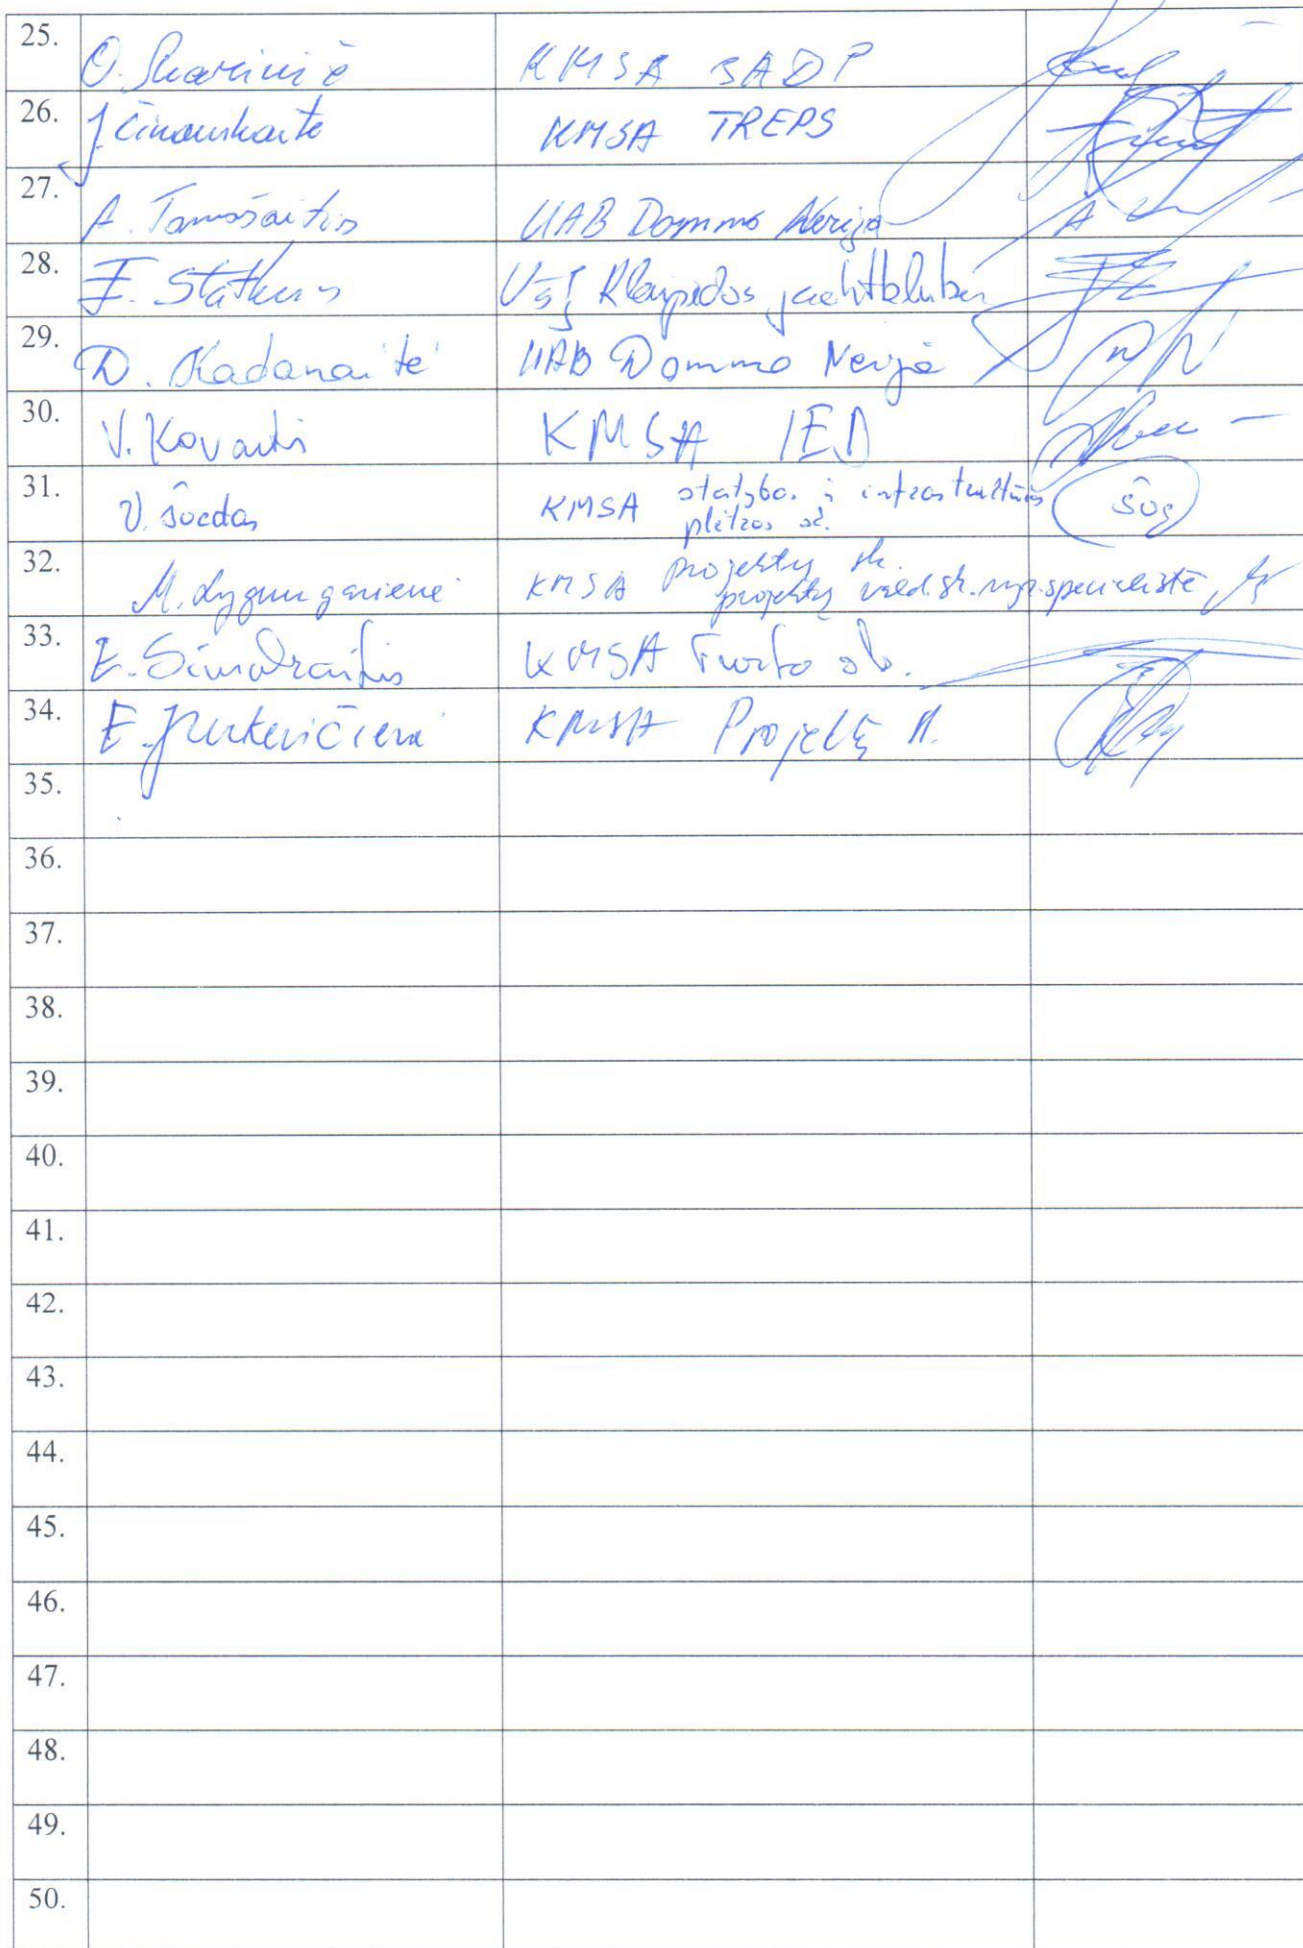 25. O. KMSA SADP
26. J. KMSA TREPS
27. A. Tamošaitis UAB Dommo Nerija
28. F. Statkus VšĮ Klaipėdos jachtklubas
29. D. Kadanaitė UAB Dommo Nerija
30. V. Kovaitis KMSA IED
31. V. Šoedas KMSA statybos ir infrastruktūros
plėtros sk.
32. M. KMSA projektų sk.
projektų vald. sk. vyr. specialistė
33. E. Simokaitis KMSA Turto sk.
34. E. Jurkevičienė KMSA Projektų
35.
36.
37.
38.
39.
40.
41.
42.
43.
44.
45.
46.
47.
48.
49.
50.